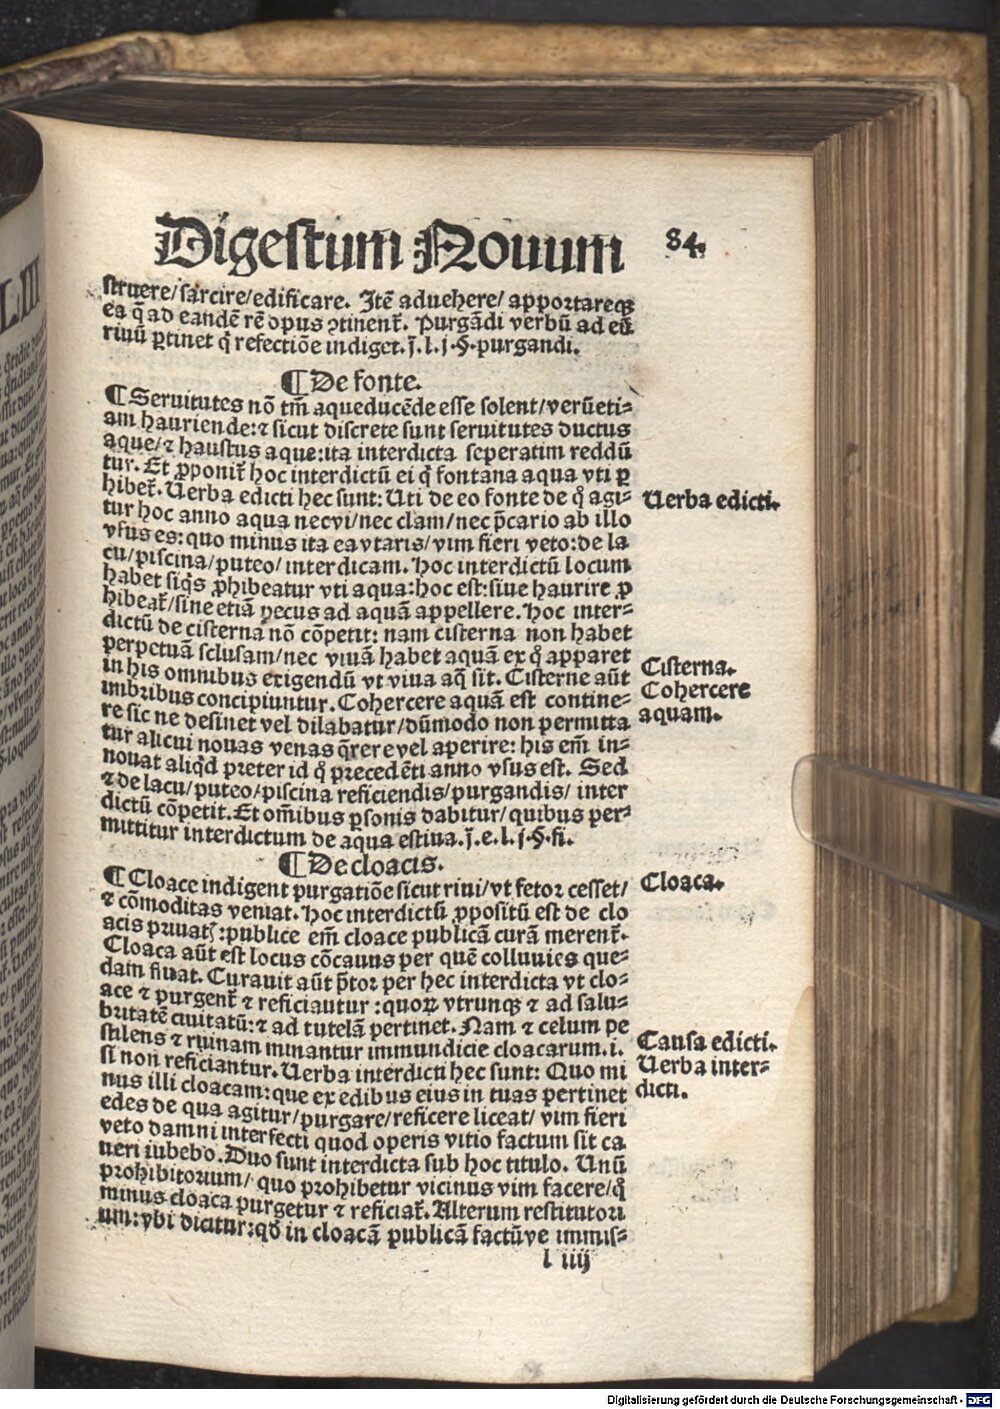 Digestum Nouum 84.
struere/sarcire/edificare. Itē aduehere/ apportareqȝ
ea q̄ ad eandē rē opus ꝯtinent̄. Purgādi verbū ad eū
riuū ꝑtinet q̄ refectiōe indiget. j̄. l. j. §. purgandi.
¶ De fonte.
¶ Seruitutes nō tm̄ aqueducēde esse solent/verūeti⸗
am hauriende: ⁊ sicut discrete sunt seruitutes ductus
aque/ ⁊ haustus aque: ita interdicta seperatim reddū
tur. Et ꝓponit̄ hoc interdictū ei q̄ fontana aqua vti ꝓ
hibet̄. Uerba edicti hec sunt: Uti de eo fonte de q̄ agi⸗
tur hoc anno aqua necvi/nec clam/nec p̄cario ab illo
vsus es: quo minus ita eavtaris/vim fieri veto: de la
cu/piscina/puteo/ interdicam. Hoc interdictū locum
habet siq̄s ꝓhibeatur vti aqua: hoc est: siue haurire ꝓ
hibeat̄/siue etiā pecus ad aquā appellere. Hoc inter⸗
dictū de cisterna nō cōpetit: nam cisterna non habet
perpetuā sclusam/nec viuā habet aquā ex q̄ apparet
in his omnibus exigendū vt viua aq̄ sit. Cisterne aūt
imbribus concipiuntur. Cohercere aquā est contine⸗
re sic ne desinet vel dilabatur/dūmodo non permitta
tur alicui nouas venas q̄rere vel aperire: his em̄ in⸗
nouat aliq̄d preter id q̄ precedēti anno vsus est. Sed
⁊ de lacu/puteo/piscina reficiendis/purgandis/ inter
dictū cōpetit. Et om̄ibus ꝑsonis dabitur/quibus per⸗
mittitur interdictum de aqua estiua. j̄. e. l. j. §. fi.
¶ De cloacis.
¶ Cloace indigent purgatiōe sicut riui/vt fetor cesset/
⁊ cōmoditas veniat. Hoc interdictū ꝓpositū est de clo
acis priuat̄: publice em̄ cloace publicā curā merent̄.
Cloaca aūt est locus cōcauus per quē colluuies que⸗
dam fluat. Curauit aūt p̄tor per hec interdicta vt clo⸗
ace ⁊ purgent̄ ⁊ reficiautur: quoꝝ vtrunqȝ ⁊ ad salu⸗
britatē ciuitatū: ⁊ ad tutelā pertinet. Nam ⁊ celum pe
stilens ⁊ ruinam minantur immundicie cloacarum. i.
si non reficiantur. Uerba interdicti hec sunt: Quo mi
nus illi cloacam: que ex edibus eius in tuas pertinet
edes de qua agitur/purgare/reficere liceat/ vim fieri
veto damni interfecti quod operis vitio factum sit ca
ueri iubebo. Duo sunt interdicta sub hoc titulo. Unū
prohibitorium/ quo prohibetur vicinus vim facere/q̄
minus cloaca purgetur ⁊ reficiat̄. Alterum restitutori
um: vbi dicitur: qd̄ in cloacā publicā factūve immis⸗
l iiij
Uerba edicti.
Cisterna.
Cohercere
aquam.
Cloaca.
Causa edicti.
Uerba inter⸗
dicti.
Digitalisierung gefördert durch die Deutsche Forschungsgemeinschaft - DFG